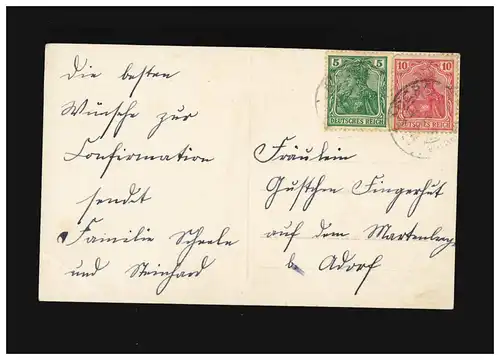 5 5
DEUTSCHES REICH
10 10
DEUTSCHES REICH
Die besten
Wünsche zur
Confirmation
sendet
Familie Scheele
und Steinhard
Fräulein
Gustchen Fingerhut
auf dem Martenberge
b. Adorf